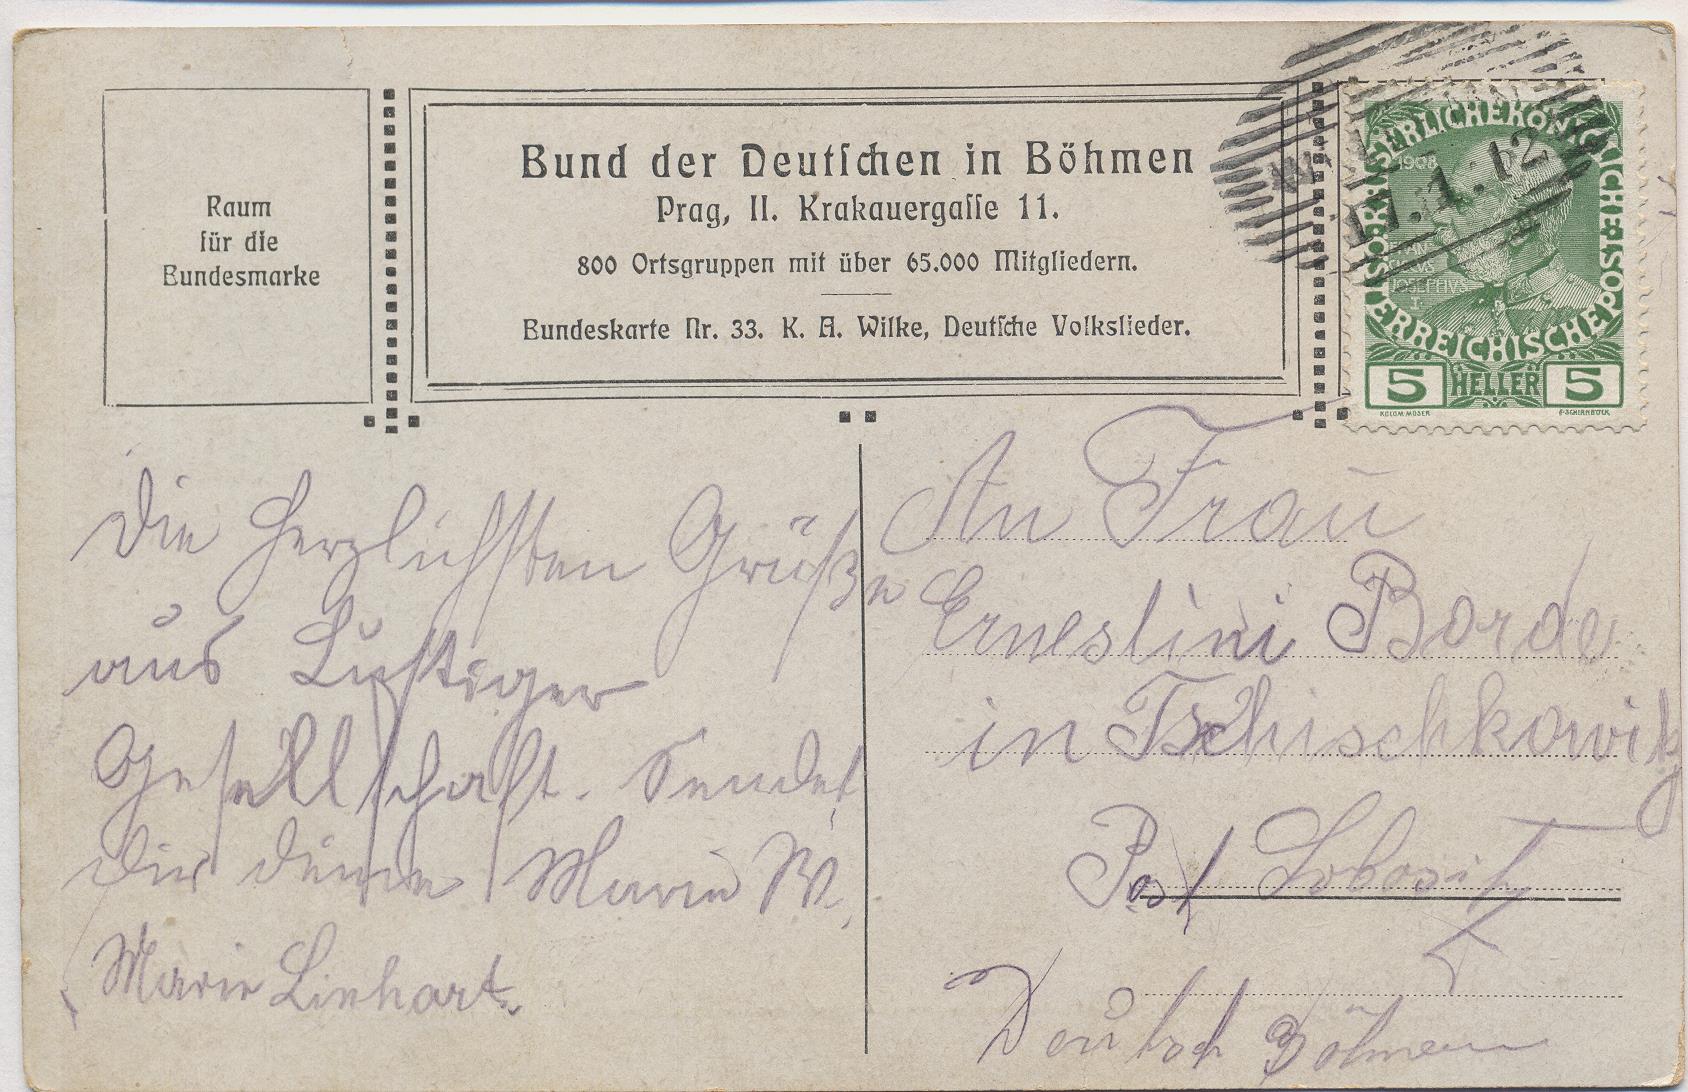 Raum
für die
Bundesmarke
Bund der Deutschen in Böhmen
Prag, II. Krakauergasse 11.
800 Ortsgruppen mit über 65.000 Mitgliedern.
Bundeskarte Nr. 33. K. A. Wilke, Deutsche Volkslieder.
KAISERLICHE KÖNIGLICHE ÖSTERREICHISCHE POST
1908
FRAN
CISCVS
IOSEPHVS
I
5 HELLER 5
KOLOM. MOSER F. SCHIRNBÖCK
17.1.12
Die herzlichsten Grüße
aus Lustiger
Gesellschaft. Sendet
Dir deine Marie W.
Marie Linhart.
An Frau
Ernestini Borde
in Tschischkowitz
Post Lobositz
Deutsch Böhmen